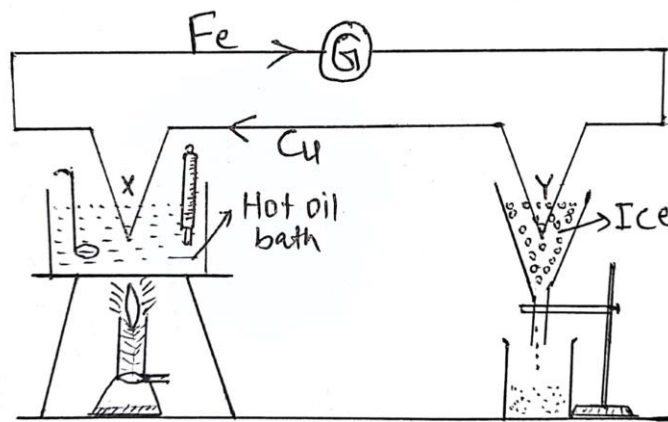 Fe
G
Cu
X
Y
Hot oil
bath
Ice